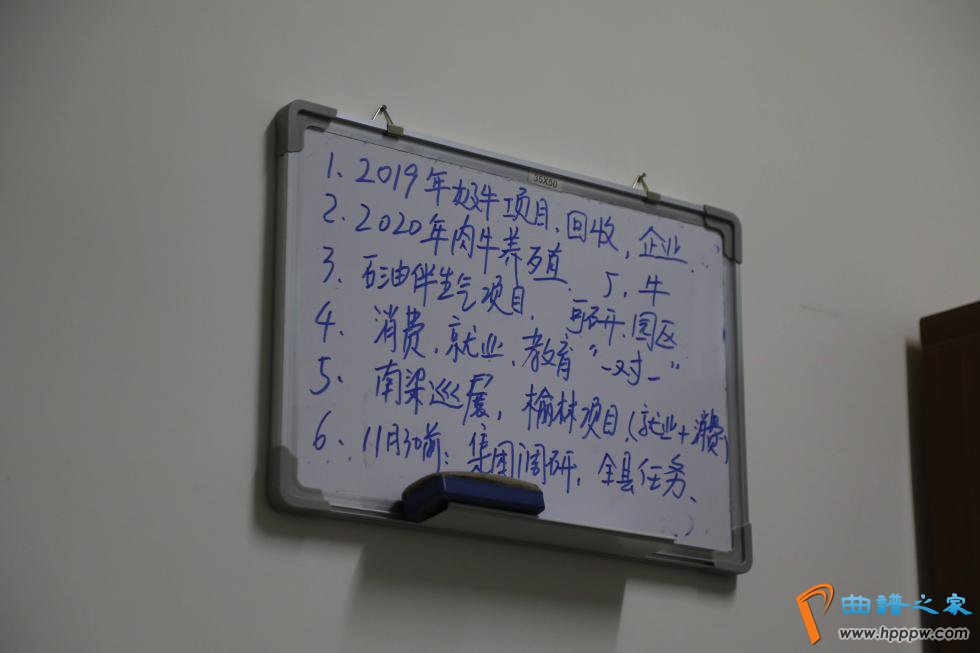 35X50
1. 2019年极牛项目、回收,企业.
2. 2020年肉牛养殖 5. 牛
3. 石油伴生气项目. 可研.园区
4. 消费、就业、教育“一对一”
5. 南梁巡展, 榆林项目(就业+消费)
6. 11月30前:集团调研,全县任务、
曲譜之家
www.hppw.com